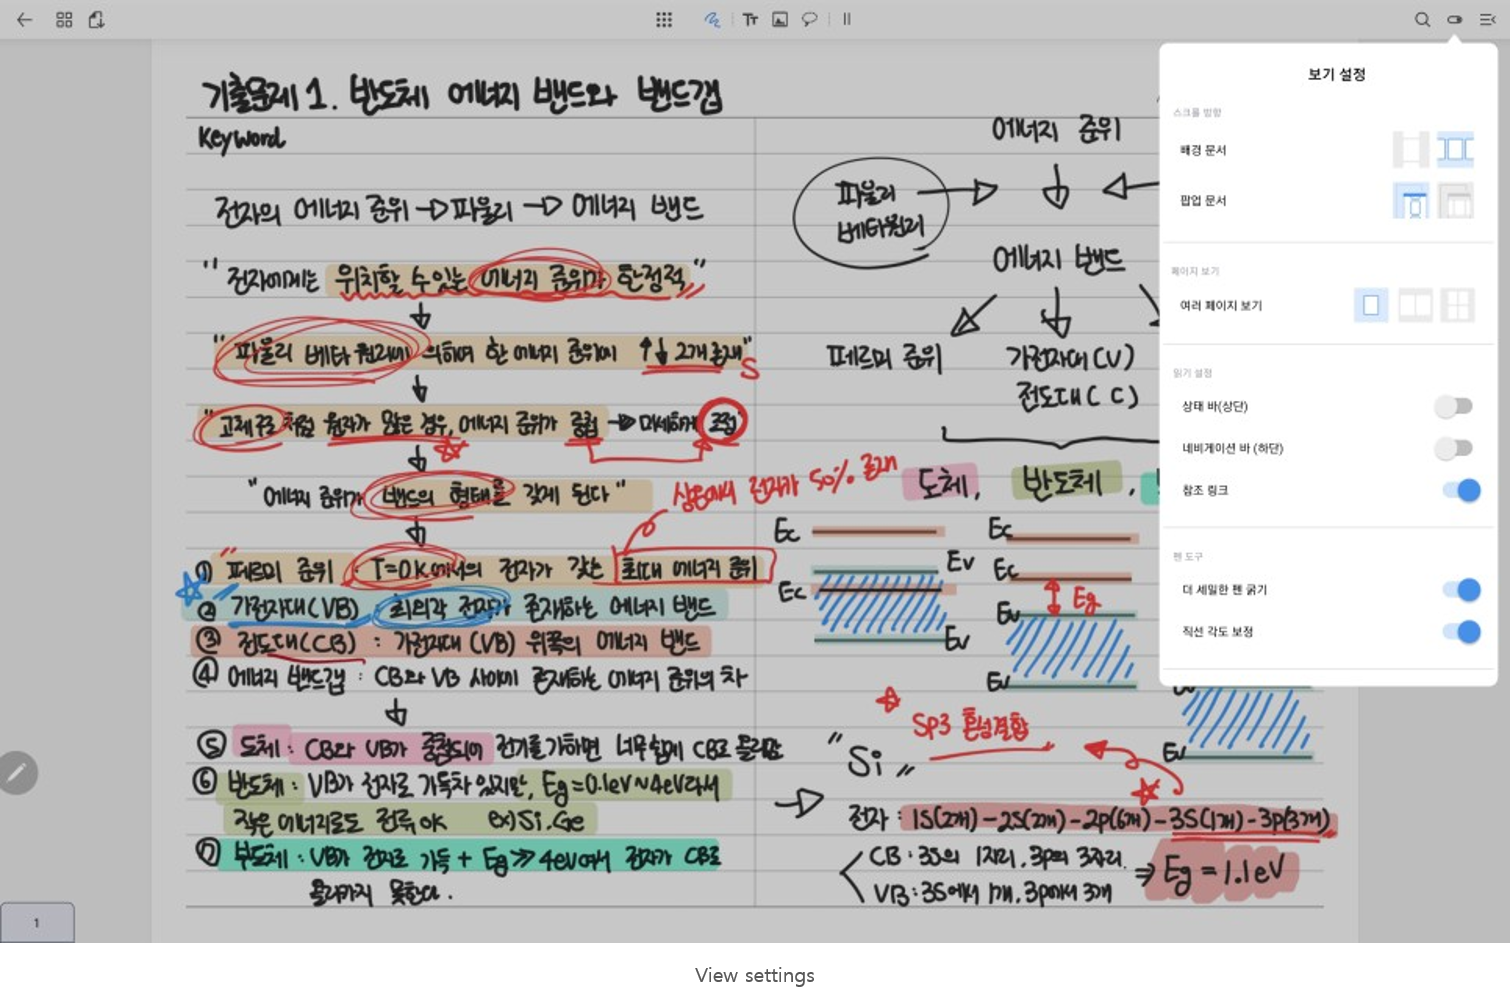 기출문제 1. 반도체 에너지 밴드와 밴드갭
Keyword
전자의 에너지 준위 → 파울리 → 에너지 밴드
"전자에게는 위치할 수 있는 에너지 준위가 한정적"
"파울리 베타 원리에 의하여 한 에너지 준위에 ↑↓ 2개 존재"
S
"고체구조처럼 원자가 많은 경우, 에너지 준위가 중첩 → 미세하게
"에너지 준위가 밴드의 형태를 갖게 된다"
상온에서 전자가 50% 존재
① "페르미 준위 : T=0K에서의 전자가 갖는 최대 에너지 준위
② 가전자대(VB) : 최외각 전자가 존재하는 에너지 밴드
③ 전도대(CB) : 가전자대(VB) 위쪽의 에너지 밴드
④ 에너지 밴드갭 : CB와 VB 사이에 존재하는 에너지 준위의 차
⑤ 도체 : CB와 VB가 중첩되어 전기를 가하면 너무쉽게 CB로 올라감
⑥ 반도체 : VB가 전자로 가득차 있지만, Eg=0.1eV~4eV라서
작은 에너지로도 전류 OK ex) Si, Ge
⑦ 부도체 : VB가 전자로 가득 + Eg≫4eV여서 전자가 CB로
올라가지 못한다.
에너지 준위
파울리
베타원리
에너지 밴드
페르미 준위
가전자대(V)
전도대(C)
도체, 반도체,
Ec
Ev
Ec
Ev
Ec
Ec
Eg
Ev
Ev
Ev
SP3 혼성결합
"Si"
전자 : 1S(2개)-2S(2개)-2p(6개)-3S(1개)-3p(3개)
CB : 3S의 1자리, 3p의 3자리.
VB : 3S에서 1개, 3p에서 3개
⇒ Eg=1.1eV
보기 설정
스크롤 방향
배경 문서
팝업 문서
페이지 보기
여러 페이지 보기
읽기 설정
상태 바(상단)
네비게이션 바 (하단)
참조 링크
펜 도구
더 세밀한 펜 굵기
직선 각도 보정
1
View settings